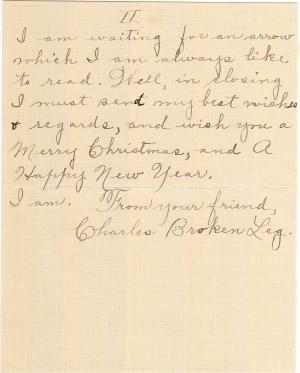 II.
I am waiting for an arrow
which I am always like
to read. Well, in closing
I must send my best wishes
& regards, and wish you a
Merry Christmas, and A
Happy New Year.
I am. From your friend,
Charles Broken Leg.